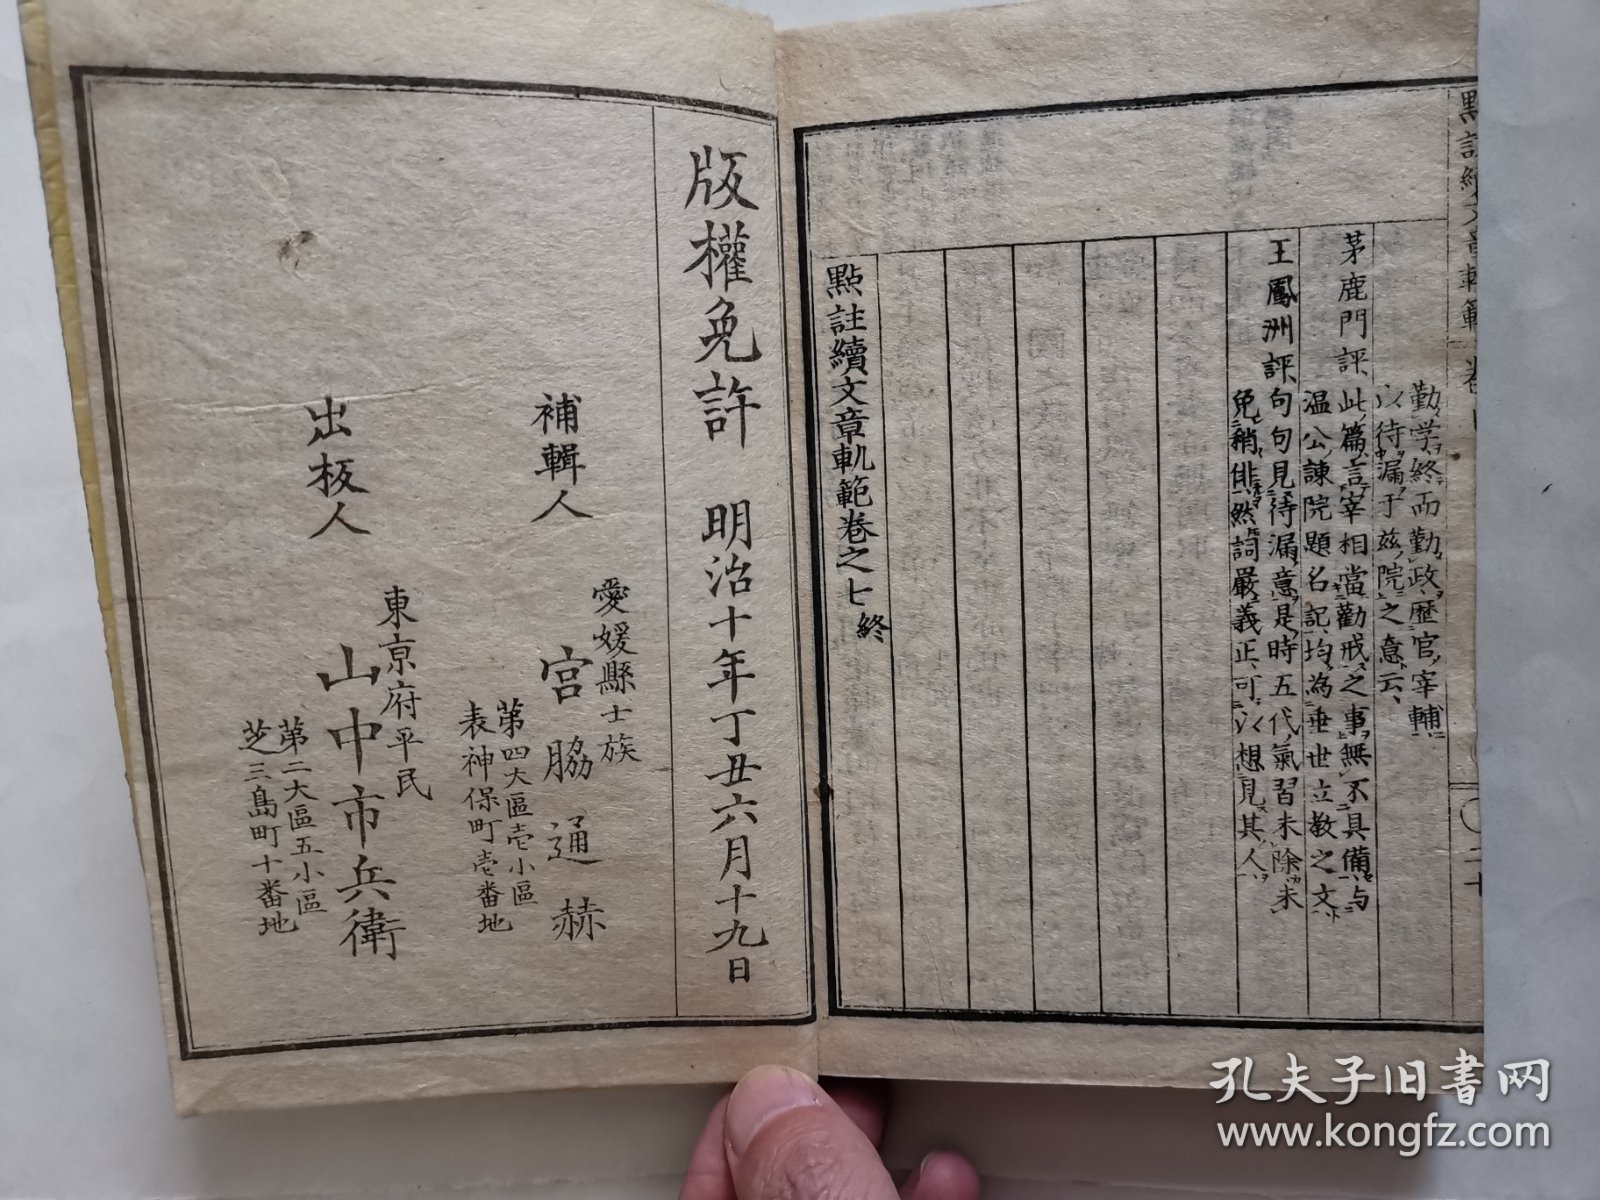 點註續文章軌範
勤学終而勤政歷官宰輔
以待漏于茲院之意云
茅鹿門評此篇言宰相當勸戒之事無不具備与
温公諫院題名記均為垂世立教之文
王鳳洲評句句見待漏意是時五代氣習未除未
免稍俳然詞嚴義正可以想見其人
點註續文章軌範卷之七終
版權免許 明治十年丁丑六月十九日
愛媛縣士族
補輯人 宮脇通赫
第四大區壱小區
表神保町壱番地
東京府平民
出板人 山中市兵衛
第二大區五小區
芝三島町十番地
孔夫子旧书网
www.kongfz.com